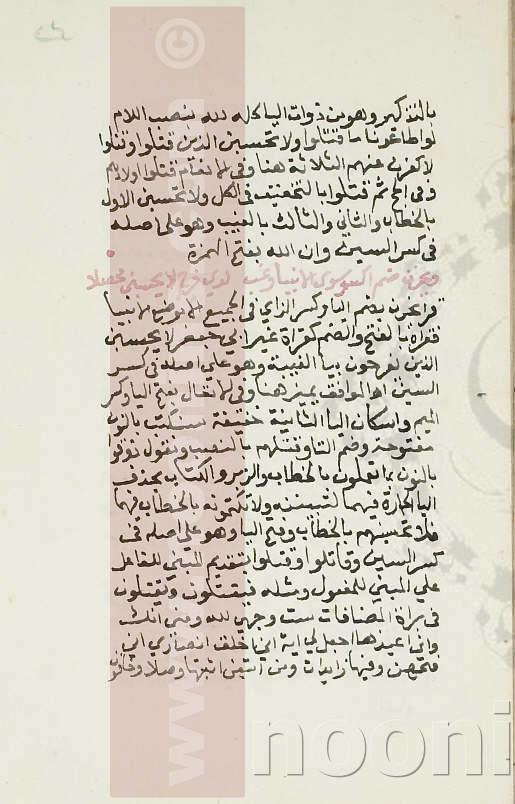 بالتذكير وهو من ذوات اليا كله لله بنصب اللام
لو اطاعونا ما قتلوا ولا تحسبن الذين قتلوا وقتلوا
لا كفرن عنهم الثلاثة هنا وفي الانعام قتلوا اولادهم
وفي الحج ثم قتلوا بالتخفيف في الكل ولا تحسبن الاول
بالخطاب والثاني والثالث بالغيب وهو على اصله
في كسر السين وان الله بفتح الهمزة
ويحزن ضم اكسر سوى الانبيا وغب لدى فرح لا يحسبن
قرا يحزن بضم اليا وكسر الزاي في الجميع الا موضع الانبيا
فقراه بالفتح والضم كقراة غير ابي جعفر لا يحسبن
الذين يفرحون بيا الغيبة وهو على اصله في كسر
السين اهـ الموافق يميز هنا وفي الانفال بفتح اليا وكسر
الميم واسكان اليا الثانية خفيفة سنكتب بالنون
مفتوحة وضم التا وقتلهم بالنصب ونقول ذوقوا
بالنون بما تعملون بالخطاب والزبر والكتاب بحذف
البا الجارة فيهما لتبيننه ولا تكتمونه بالخطاب فيهما
فلا تحسبنهم بالخطاب وفتح البا وهو على اصله في
كسر السين وقاتلوا وقتلوا بتقديم المبني للفاعل
على المبني للمفعول ومثله فيقتلون ويقتلون
في براة المضافات ست وجهي لله ومني انك
واني اعيذها اجعل لي اية اني اخلق انصاري الى
فتحهن وفيها زايدات ومن اتبعن اثبتها وصلا وخافون
www
nooni